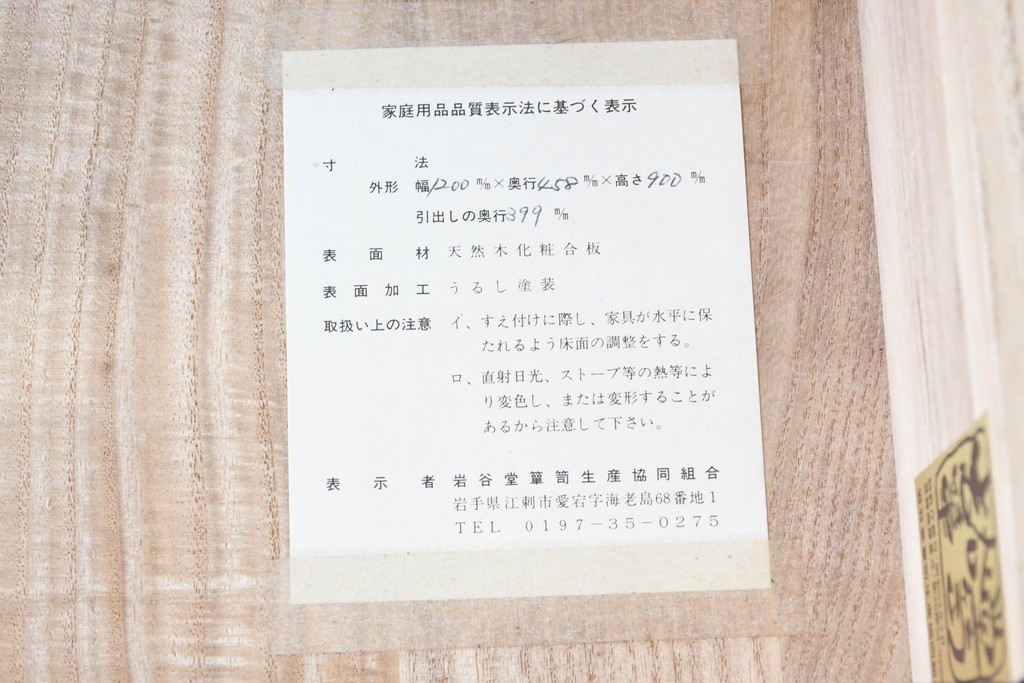 家庭用品品質表示法に基づく表示
寸法
外形 幅1200 m/m×奥行458 m/m×高さ900 m/m
引出しの奥行399 m/m
表面材 天然木化粧合板
表面加工 うるし塗装
取扱い上の注意 イ、すえ付けに際し、家具が水平に保
たれるよう床面の調整をする。
ロ、直射日光、ストーブ等の熱等によ
り変色し、または変形することが
あるから注意して下さい。
表示者 岩谷堂簞笥生産協同組合
岩手県江刺市愛宕字海老島68番地1
TEL 0197-35-0275